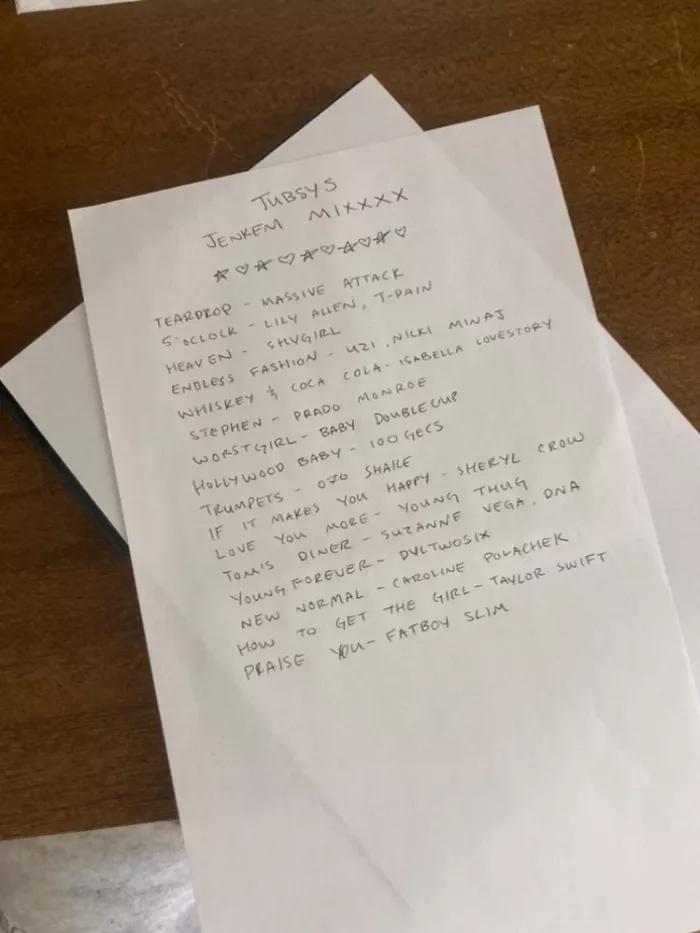 TUBSYS
JENKEM MIXXXX
☆♡☆♡☆♡☆♡☆♡
TEARDROP - MASSIVE ATTACK
5'OCLOCK - LILY ALLEN, T-PAIN
HEAVEN - SHYGIRL
ENDLESS FASHION - UZI, NICKI MINAJ
WHISKEY & COCA COLA - ISABELLA LOVESTORY
STEPHEN - PRADO MONROE
WORSTGIRL - BABY DOUBLECUP
HOLLYWOOD BABY - 100 GECS
TRUMPETS - 070 SHAKE
IF IT MAKES YOU HAPPY - SHERYL CROW
LOVE YOU MORE - YOUNG THUG
TOM'S DINER - SUZANNE VEGA, DNA
YOUNG FOREVER - DYLTWOSIX
NEW NORMAL - CAROLINE POLACHEK
HOW TO GET THE GIRL - TAYLOR SWIFT
PRAISE YOU - FATBOY SLIM